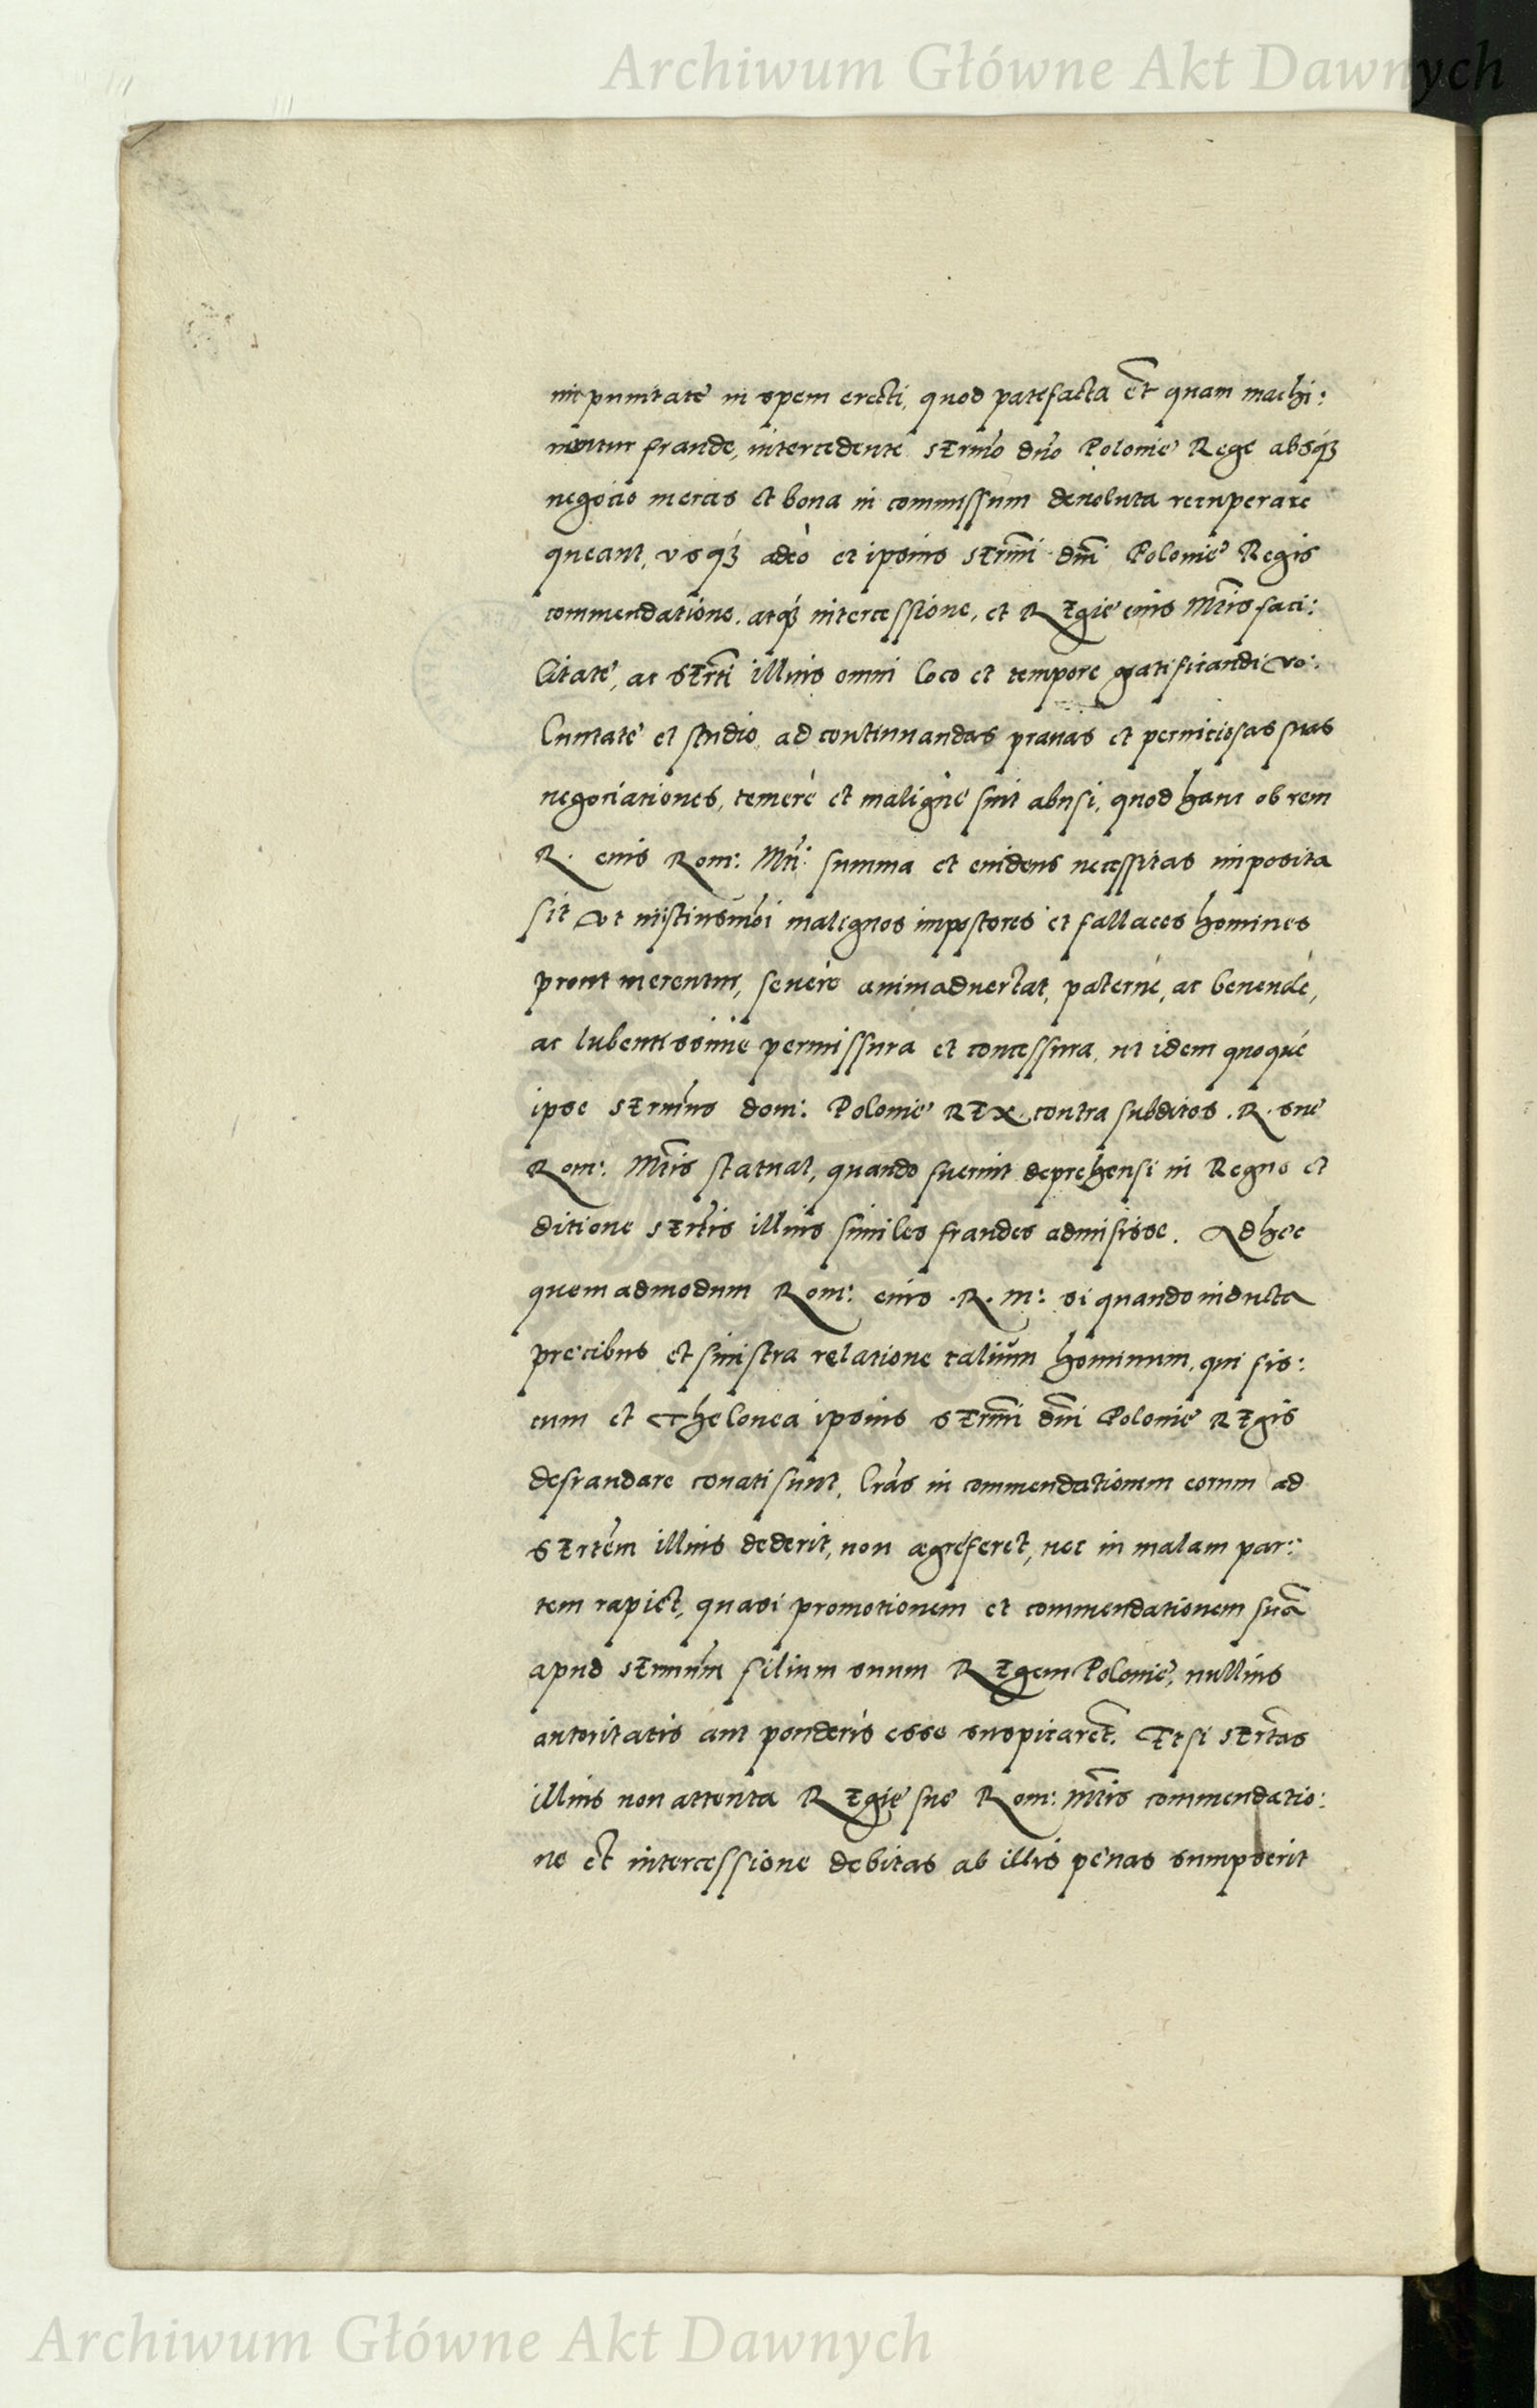 Archiwum Główne Akt Dawnych
impunitate in spem erecti, quod patefacta et quam machi:
nentur fraude, intercedente sermo dno Polonie Rege absq3
negocio merces et bona in commissum devoluta recuperare
queant, usq3 adeo et ipsius sermi dni Polonie Regis
commendatione, atq3 intercessione, et Regie eius Mtis faci:
litate, ac Serti illius omni loco et tempore gratificandi vo:
luntate et studio ad continuandas pravas et perniciosas suas
negociationes, temere et maligne sint abusi, quod hanc ob rem
R. eius Rom: Mti: summa et evidens necessitas imposita
sit ut in istiusmoi malignos impostores et fallaces homines
prout merentur, severe animadvertat, paterne, ac benevole,
ac lubentissime permissura et concessura, ut idem quoque
ipse sermus dom: Polonie REX contra subditos .R. sue
Rom: Mtis statuat, quando fuerint deprehensi in Regno et
ditione sertis illius similes fraudes admisisse. Ad hec
quemadmodum Rom: eius .R. m: si quando inducta
precibus et sinistra relatione talium hominum, qui fis:
cum et Thelonea ipsius sermi dni Polonie Regis
defraudare conati sunt, lras in commendationem eorum ad
Sertem illius dederit, non ægre feret, nec in malam par:
tem rapiet, quasi promotionem et commendationem suã
apud sermum filium suum Regem Polonie, nullius
autoritatis aut ponderis esse suspicaret. Etsi sertas
illius non attenta Regie sue Rom: Mtis commendatio:
ne et intercessione debitas ab illis penas sumpserit
Archiwum Główne Akt Dawnych